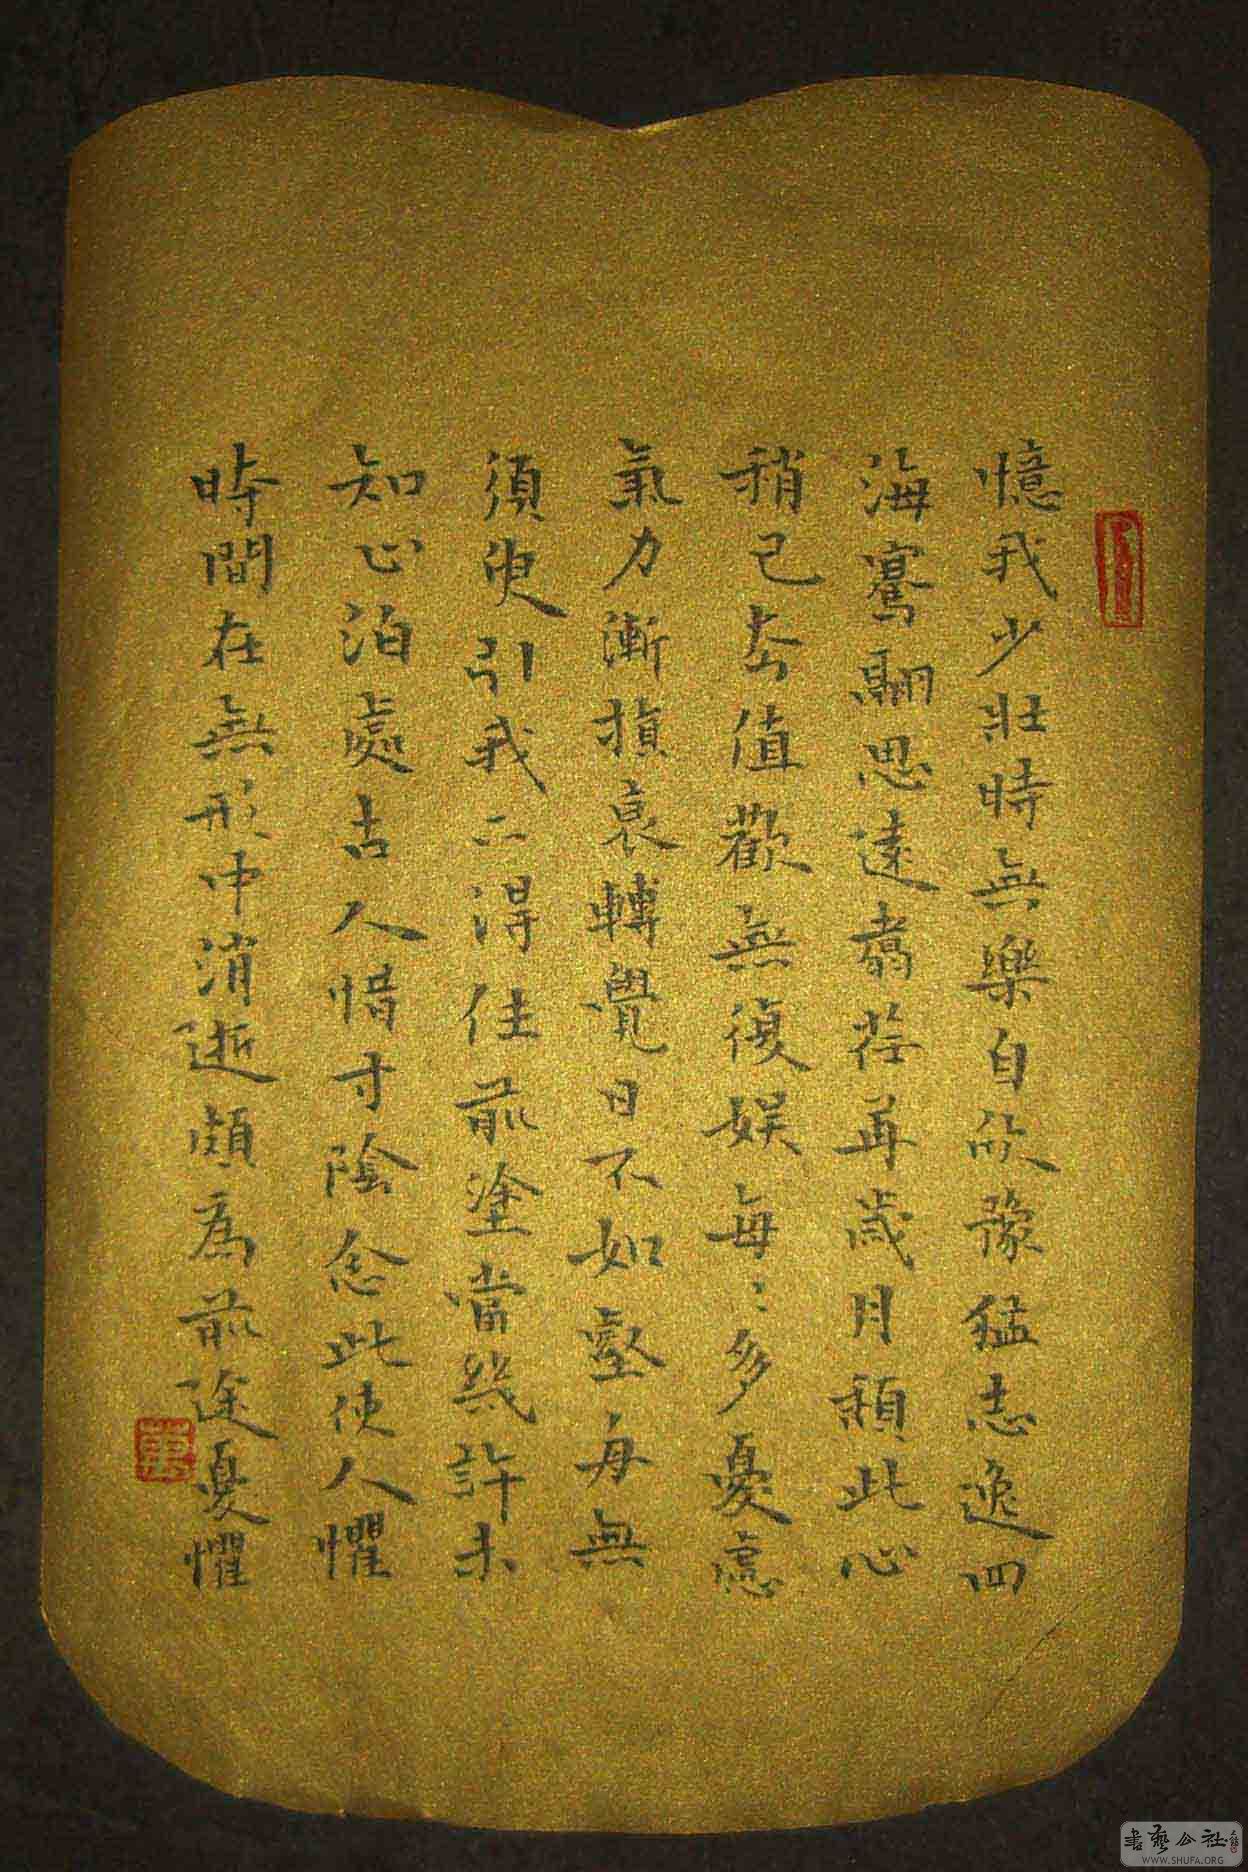 憶我少壯時無樂自欣豫猛志逸四
海騫翮思遠翥荏苒歲月頹此心
稍已去值歡無復娛每〻多憂慮
氣力漸損衰轉覺日不如壑舟無
須臾引我不得住前塗當幾許未
知止泊處古人惜寸陰念此使人懼
時間在無形中消逝頗為前途憂懼
書藝公社
WWW.SHUFA.ORG